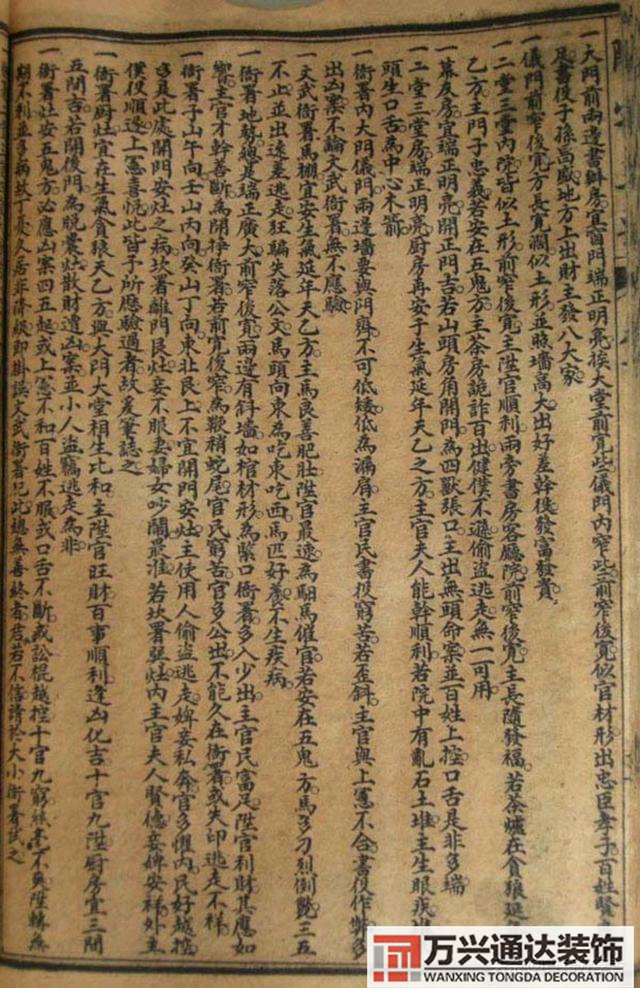 一大門前兩邊書辦房宜窗門端正明亮後大堂前寬些儀門內窄些前窄後寬似官材形出忠臣孝子百姓賢
民書役子孫尚盛地方上出財主發八大家
一儀門前窄後寬方長寬濶似土形並照墻高大出好差幹後發富發貴
一二堂三堂內院皆似土形前窄後寬主陞官順利兩旁書房客廳院前窄後寬主長隨發福若茶爐在貪狼延
乙方主門子忠義若安在五鬼方主茶房詭詐百出健僕不遜偷盜逃走無一可用
一幕友房宜端正明亮開正門吉若山頭房角開門為四獸張口主出無頭命案並百姓上控口舌是非多端
一二堂三堂房端正明亮廚房再安于生氣延年天乙之方主官夫人能幹順利若院中有亂石土堆主生眼疾
頭生口舌為中心木箭
一衙署內大門儀門兩邊墻要與門齊不可低矮低為漏肩主官民書役窮苦若歪斜主官與上憲不合書役作弊多
出凶案不論文武衙署無不應驗
一文武衙署馬棚宜安生氣延年天乙方主馬良善肥壯陞官最速為駟馬催官若安在五鬼方馬多刁烈倒斃三五
不止並出速差逃走狂騙失落公文馬頭向東為吃東吃西馬匹好養不生疾病
一衙署地勢總是端正廣大前窄後寬兩邊有斜墻如棺材形為緊口衙署多入少出主官民富足陞官利財其應如
響主官才幹善斷為開掙衙署若前寬後窄為鞭稍蛇尾官民窮苦官多公出不能久在衙署或失印逃走不祥
一衙署子山午向壬山丙向癸山丁向東北艮上不宜開門安灶主使用人偷盜逃走婢妾私奔官多懼內民好越控
多見此處開門安灶之病坎署離門艮灶妻不服妻婦女吵鬧最准若坎署巽灶內主官夫人賢德妾婢安祥外主
僕役順遂上憲喜悅此皆予所應驗過者故爰筆誌之
一衙署廚灶宜在生氣貪狼天乙方與大門大堂相生比和主陞官旺財百事順利逢凶化吉十官九陞廚房宜三間
五間吉若開後門為脫囊灶散財遭凶案並小人盜竊逃走為非
一衙署灶安五鬼方必應凶案四五起或上憲不和百姓不服或口舌不斷或訟棍越控十官九窮絲毫不爽陞轉為
期不利並多病故丁憂久居非降級即掛誤文武衙署犯此總無善終者君若不信請於大小衙署試之
万兴通达装饰
WANXING TONGDA DECORATION